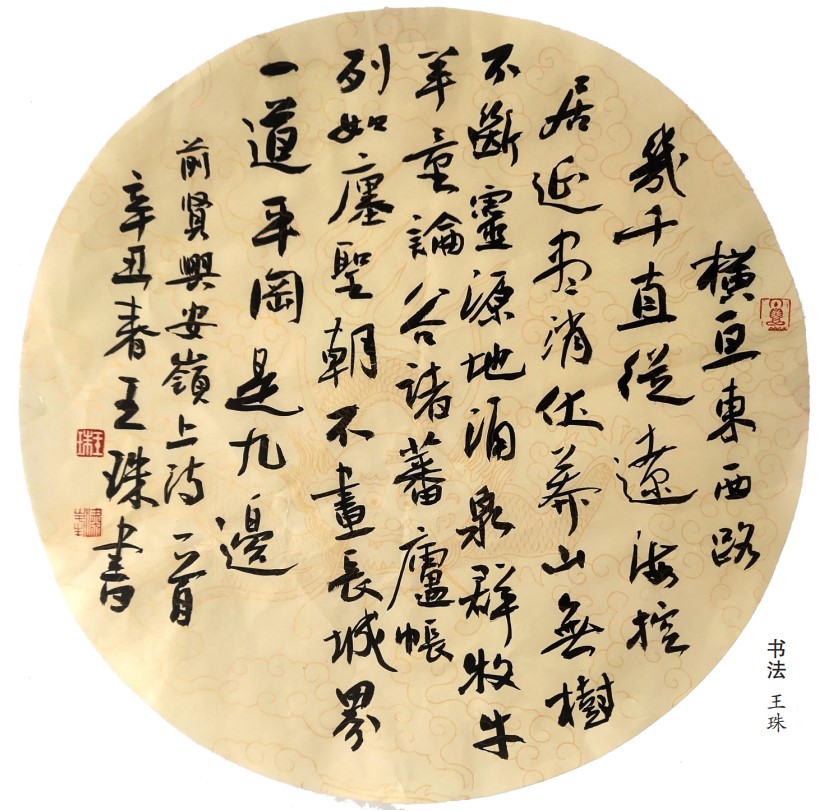 橫亘東西路
幾千直從遼海控
居延盡消伏莽山無樹
不斷靈源地涌泉群牧牛
羊量論谷諸蕃廬帳
列如廛聖朝不畫長城界
一道平岡是九邊
前賢興安嶺上詩一首
辛丑春王珠書
王珠
书法 王珠